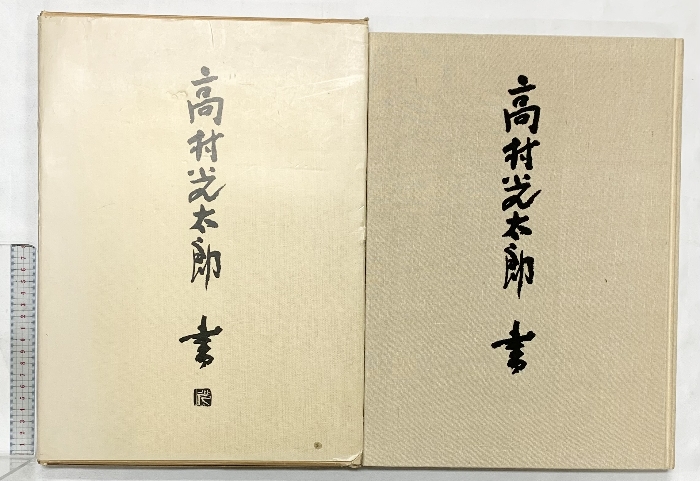 高村光太郎 書
光
高村光太郎 書